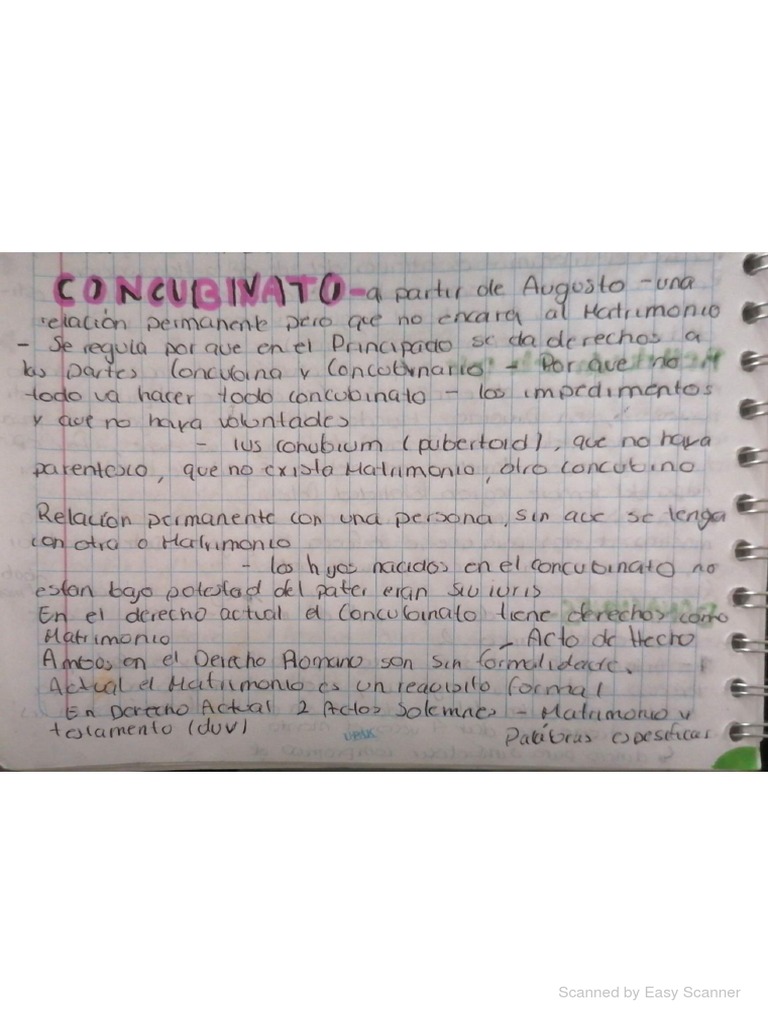 CONCUBINATO - a partir de Augusto - una
relación permanente pero que no encara al Matrimonio
- Se regula por que en el Principado se da derechos a
las partes Concubina y Concubinario - Por que no
todo va hacer todo concubinato - los impedimentos
y que no haya voluntades
- ius conubium (pubertad), que no haya
parentesco, que no exista Matrimonio, otro concubino
Relación permanente con una persona, sin que se tenga
con otra o Matrimonio
- los hijos nacidos en el concubinato no
estan bajo potestad del pater eran Sui iuris
En el derecho actual el Concubinato tiene derechos como
Matrimonio - Acto de Hecho
Ambos en el Derecho Romano son sin
Actual el Matrimonio es un requisito formal
En Derecho Actual 2 Actos Solemnes - Matrimonio y
testamento (duv) Palabras espesificas
Scanned by Easy Scanner